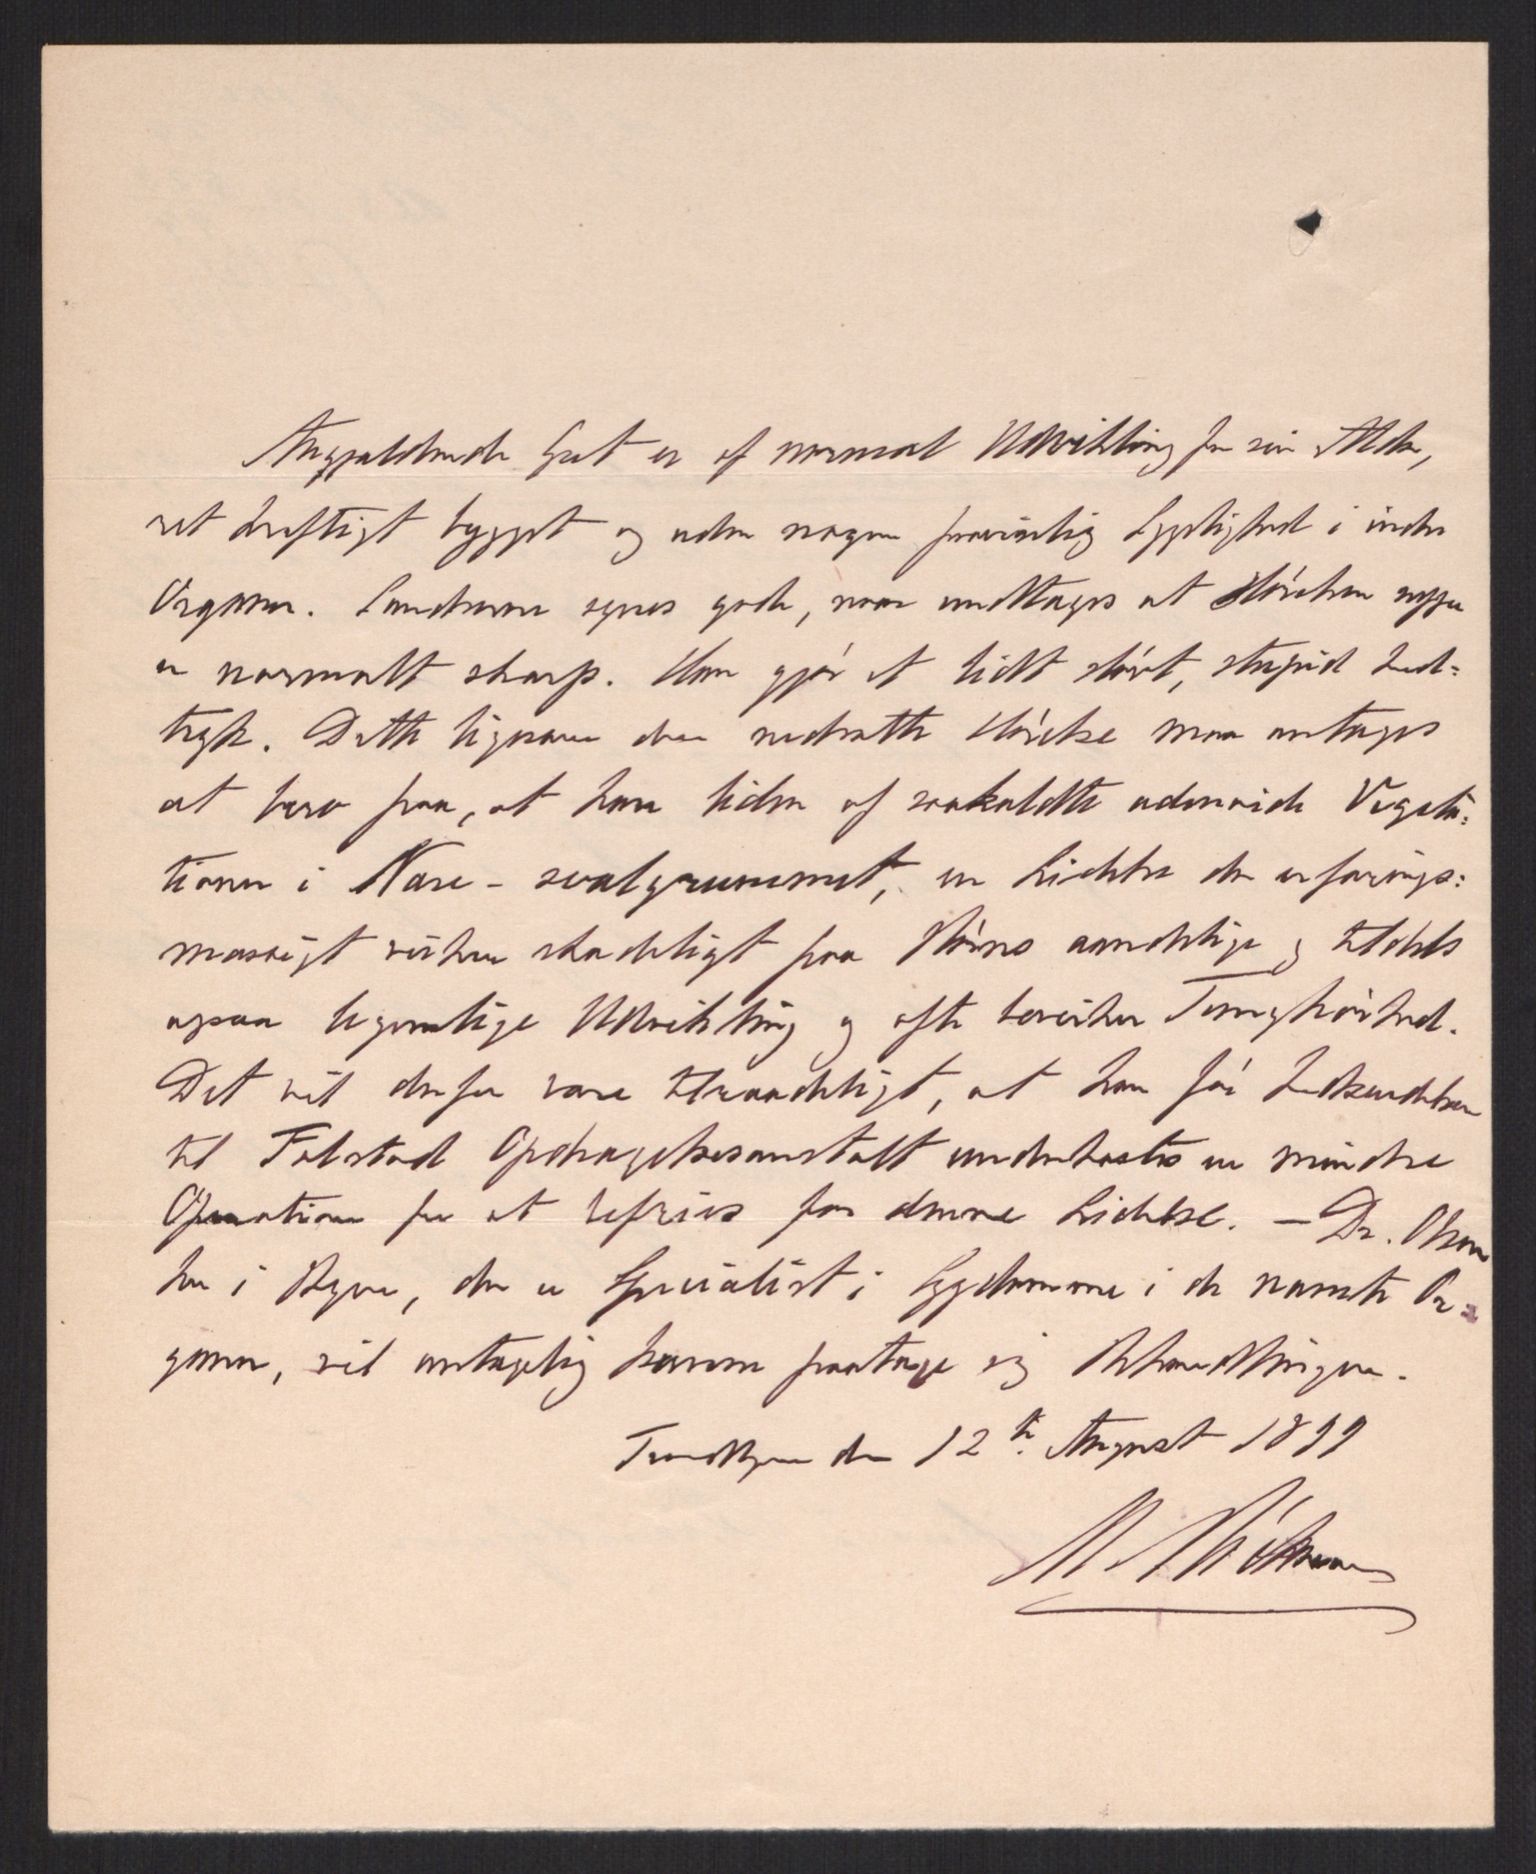 Angjældende Gut er af normal Udvikling for sin Alder,
ret kraftigt bygget og uden nogen paaviselig Sygelighed i indre
Organer. Sandserne synes gode, naar undtages at Hörelsen neppe
er normalt skarp. Han gjör et lidt slövt, stupid Ind=
tryk. Dette ligesom den nedsatte Hörelse maa antages
at bero paa, at han lider af saakaldte adenoide Vegeta=
tioner i Næse-svælgrummet, en Lidelse der erfarings=
mæssigt virker skadeligt paa Börns aandelige og tildels
ogsaa legemlige Udvikling og ofte bevirker Tunghörhed.
Det vil derfor være tilraadeligt, at han för Indsendelsen
til Falstad Opdragelsesanstalt underkastes en mindre
Operation for at befries for denne Lidelse. — Dr.
her i Byen, der er Specialist i Sygdomme i de nævnte Or=
ganer, vil antagelig kunne paatage sig Behandlingen.
Trondhjem den 12te August 1899